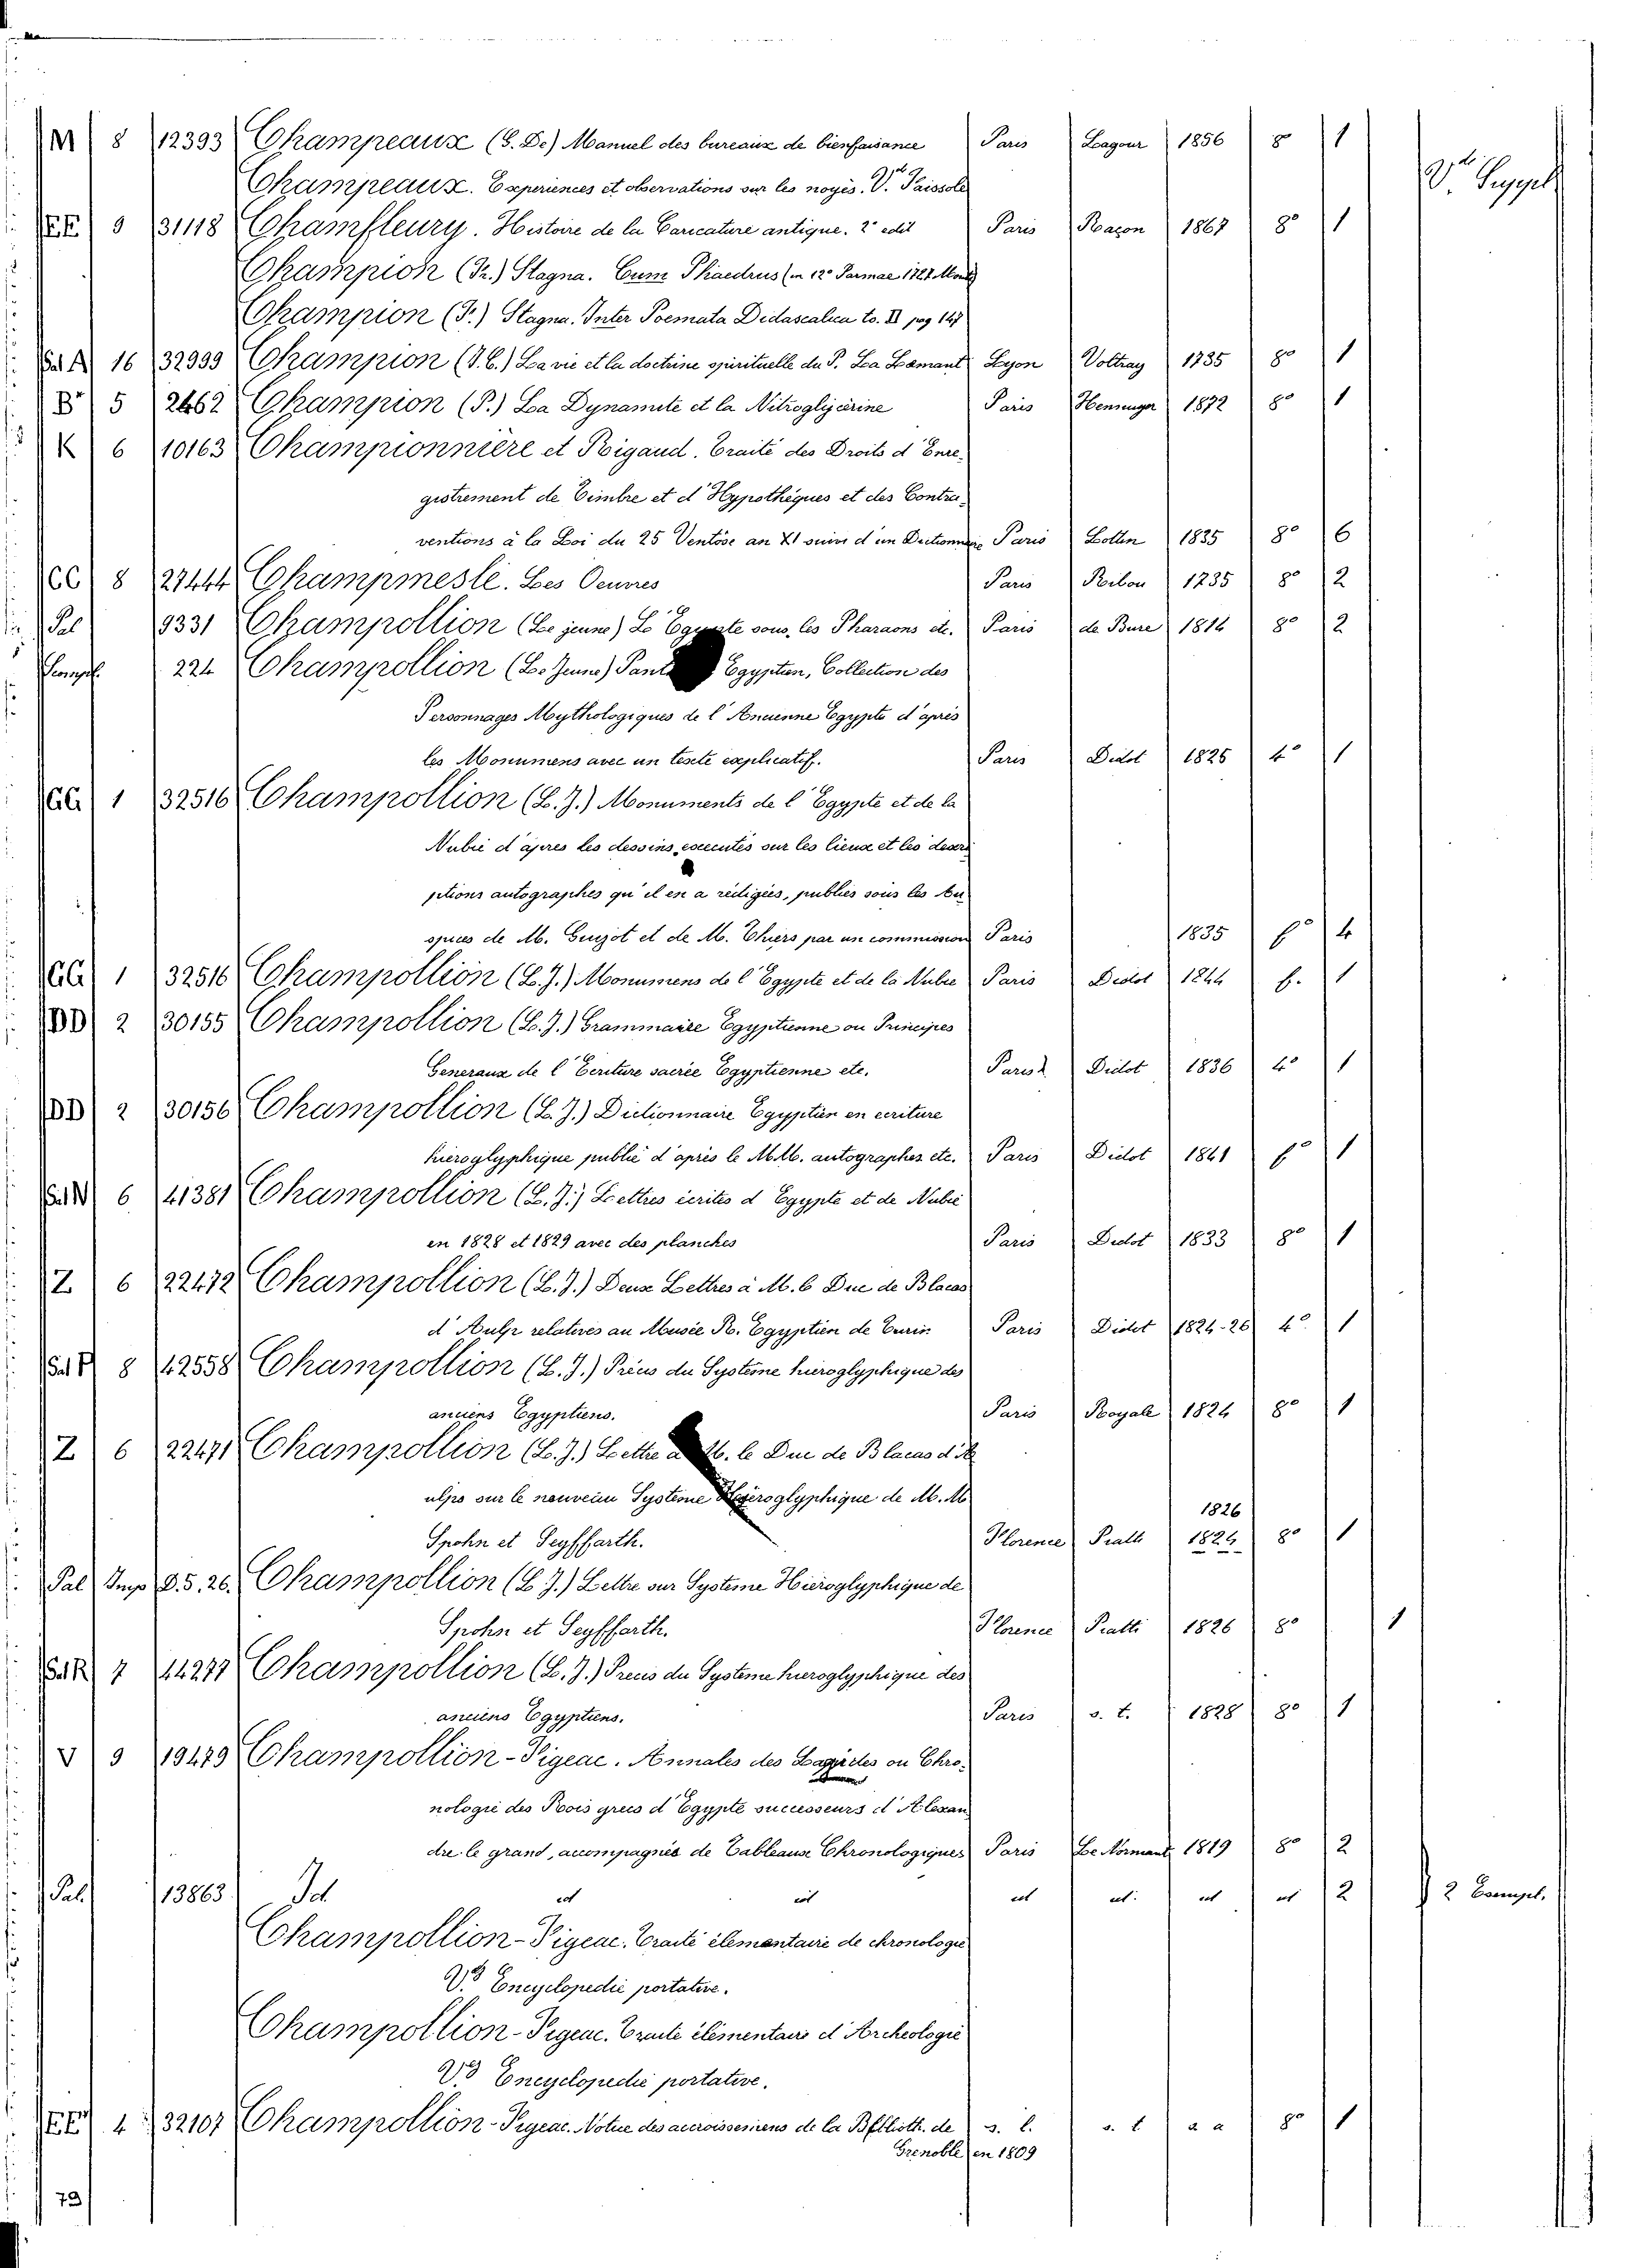 M 8 12393 Champeaux (S. De) Manuel des bureaux de bienfaisance Paris Lagour 1856 8 1
Champeaux. Experiences et observations sur les noyés. V.d Paissole V.d Suppl
EE 9 31118 Chamfleury. Histoire de la Caricature antique. 2e edit Paris Raçon 1867 8° 1
Champion (Fr.) Stagna. Cum Phaedrus (in 12° Parmae 1727 Monti
Champion (F.) Stagna. Inter Poemata Didascalica to. II pag 147
Sal A 16 32999 Champion (J. C.) La vie et la doctrine spirituelle du P. La Lemant Lyon Voltray 1735 8° 1
B 5 2462 Champion (P.) La Dynamite et la Nitroglycérine Paris Hennuyer 1872 8° 1
K 6 10163 Championnière et Rigaud. Traité des Droits d'Enre-
gistrement de Timbre et d'Hypothéques et des Contra-
ventions à la Loi du 25 Ventôse an XI suivi d'un Dictionnaire Paris Lotten 1835 8° 6
CC 8 27444 Champmeslé. Les Oeuvres Paris Ribou 1735 8° 2
Pal 9331 Champollion (Le jeune) L'Egypte sous les Pharaons etc. Paris de Bure 1814 8° 2
224 Champollion (Le Jeune) Egyptien, Collection des
Personnages Mythologiques de l'Ancienne Egypte d'après
les Monumens avec un texte explicatif. Paris Didot 1825 4° 1
GG 1 32516 Champollion (L. J.) Monuments de l'Egypte et de la
Nubie d'apres les dessins executés sur les lieux et les descri
ptions autographes qu'il en a rédigées, publies sous les Au
spices de M. Guizot et de M. Thiers par un commission Paris 1835 f° 4
GG 1 32516 Champollion (L. J.) Monumens de l'Egypte et de la Nubie Paris Didot 1844 f. 1
DD 2 30155 Champollion (L. J.) Grammaire Egyptienne ou Principes
Generaux de l'Ecriture sacrée Egyptienne etc. Paris Didot 1836 4° 1
DD 2 30156 Champollion (L. J.) Dictionnaire Egyptien en ecriture
hieroglyphique publié d'après le M.M. autographes etc. Paris Didot 1841 f° 1
Sal N 6 41381 Champollion (L. J.) Lettres écrites d'Egypte et de Nubie
en 1828 et 1829 avec des planches Paris Didot 1833 8° 1
Z 6 22472 Champollion (L. J.) Deux Lettres à M. le Duc de Blacas
d'Aulp relatives au Musée R. Egyptien de Turin Paris Didot 1824-26 4° 1
Sal P 8 42558 Champollion (L. J.) Précis du Systême hieroglyphique des
anciens Egyptiens. Paris Royale 1824 8° 1
Z 6 22471 Champollion (L. J.) Lettre a M. le Duc de Blacas d'A
ulps sur le nouveau Systeme Hieroglyphique de M. M
Spohn et Seyffarth. Florence Piatti 1826 1824 8° 1
Pal Imp D.5.26. Champollion (L J.) Lettre sur Systeme Hiéroglyphique de
Spohn et Seyffarth. Florence Piatti 1826 8° 1
Sal R 7 44277 Champollion (L. J.) Precis du Systeme hieroglyphique des
anciens Egyptiens. Paris s. t. 1828 8° 1
V 9 19479 Champollion-Figeac. Annales des Lagides ou Chro-
nologie des Rois grecs d'Egypte successeurs d'Alexan
dre le grand, accompagnés de Tableaux Chronologiques Paris Le Normant 1819 8° 2
Pal 13863 Id id id id id id id 2 2 Exempl.
Champollion-Figeac. Traité élementaire de chronologie
V.d Encyclopedie portative.
Champollion-Figeac. Traité élémentaire d'Archeologie
V.d Encyclopedie portative.
EE 4 32107 Champollion-Figeac. Notice des accroissemens de la Biblioth. de s. l. s. t. s. a. 8° 1
Grenoble en 1809
73